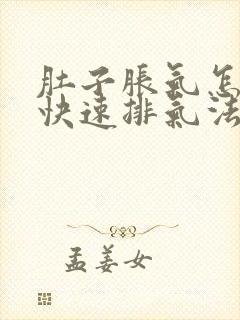 肚子胀氣怎
快速排氣法
孟姜女